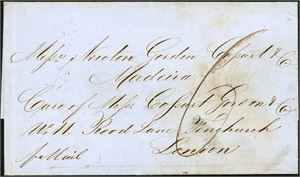 Messrs Newton Gordon Cossart & Co
Madeira
Care of Messrs Cossart Gordon & Co
No 11 Rood Lane Fenchurch
London
p Mail